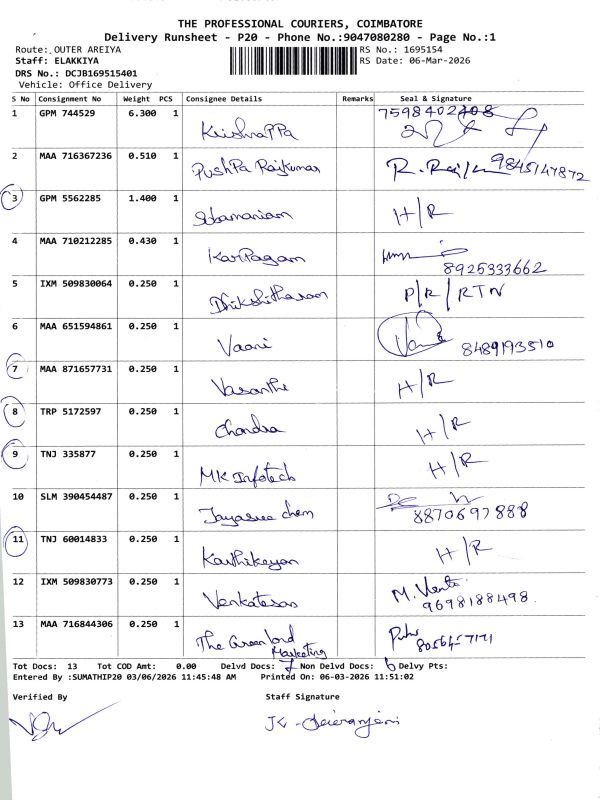 THE PROFESSIONAL COURIERS, COIMBATORE
Delivery Runsheet - P20 - Phone No.:9047080280 - Page No.:1
Route: OUTER AREIYA RS No.: 1695154
Staff: ELAKKIYA RS Date: 06-Mar-2026
DRS No.: DCJB169515401
Vehicle: Office Delivery
S No Consignment No Weight PCS Consignee Details Remarks Seal & Signature
1 GPM 744529 6.300 1 KrishnaPPa 7598402408
2 MAA 716367236 0.510 1 PushPa Rajkumar 9845147872
3 GPM 5562285 1.400 1 H/R
4 MAA 710212285 0.430 1 KarPagam 8925333662
5 IXM 509830064 0.250 1 Dhikshitharan P/R/RTN
6 MAA 651594861 0.250 1 Vaani 8489193510
7 MAA 871657731 0.250 1 Vasanthi H/R
8 TRP 5172597 0.250 1 Chandra H/R
9 TNJ 335877 0.250 1 MK Infotech H/R
10 SLM 390454487 0.250 1 Jayasree chem 8870697888
11 TNJ 60014833 0.250 1 Karthikeyan H/R
12 IXM 509830773 0.250 1 Venkatesan 9698188498
13 MAA 716844306 0.250 1 The Green lord Marketing
Tot Docs: 13 Tot COD Amt: 0.00 Delvd Docs: 7 Non Delvd Docs: 6 Delvy Pts:
Entered By :SUMATHIP20 03/06/2026 11:45:48 AM Printed On: 06-03-2026 11:51:02
Verified By Staff Signature